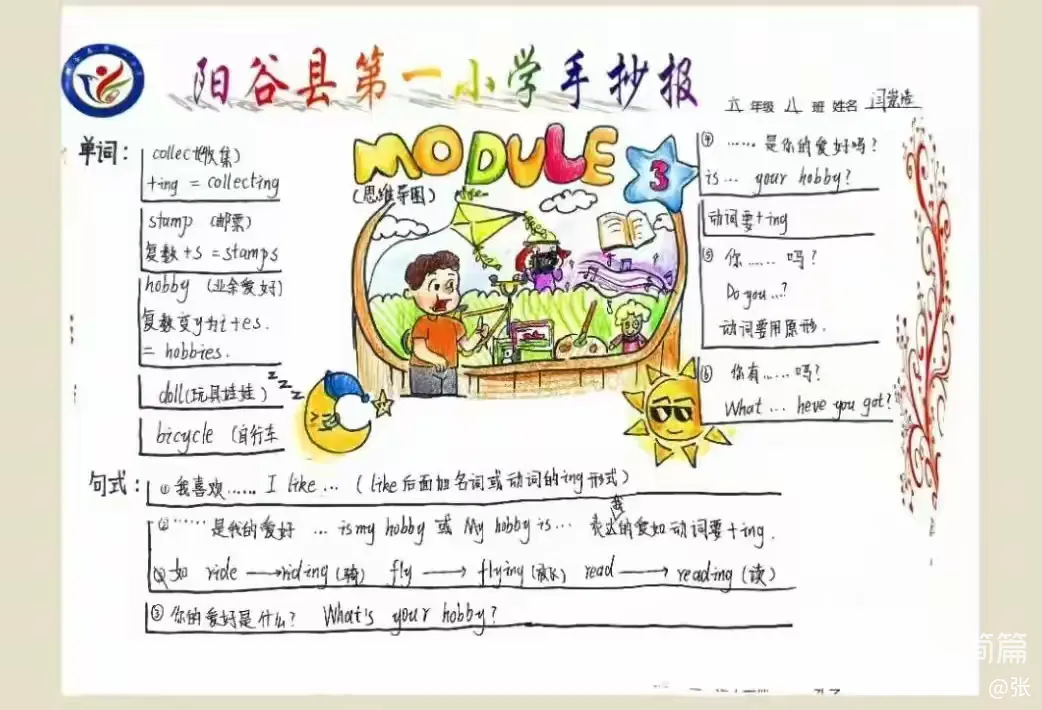 阳谷县第一小学手抄报
六 年级 八 班 姓名
单词：
collect(收集)
+ing = collecting
stamp (邮票)
复数+s = stamps
hobby (业余爱好)
复数变y为i+es.
= hobbies.
doll(玩具娃娃)
bicycle (自行车
MODULE 3
(思维导图)
④ ……是你的爱好吗?
is... your hobby?
动词要+ing
⑤ 你……吗?
Do you...?
动词要用原形.
⑥ 你有……吗?
What ... heve you got?
句式：
①我喜欢…… I like ... (like后面加名词或动词的ing形式)
②……是我的爱好 ... is my hobby 或 My hobby is... 表达我的爱好动词要+ing.
如 ride → riding(骑) fly → flying(放飞) read → reading(读)
③你的爱好是什么? What's your hobby?
简篇
@张